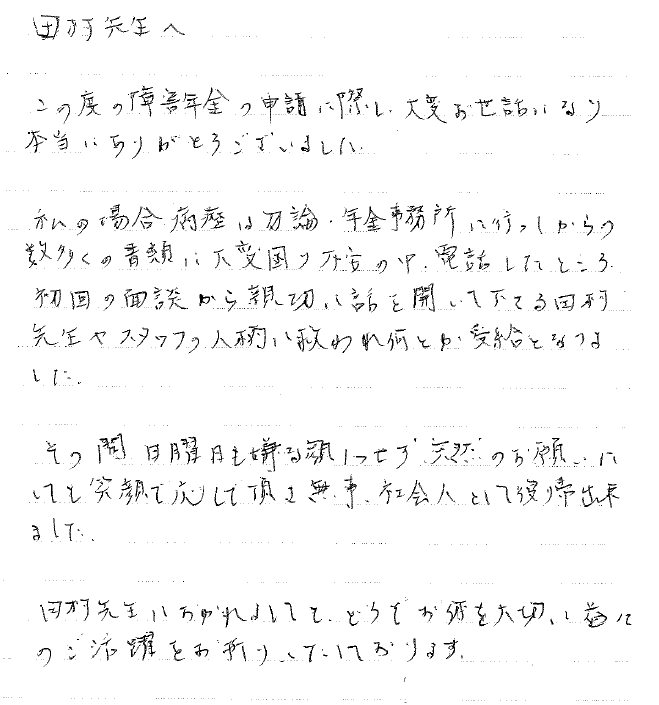 田村先生へ
この度の障害年金の申請に際し、大変お世話になり
本当にありがとうございました。
私の場合病歴は勿論・年金事務所に行ってからの
数多くの書類に大変困り不安の中、電話したところ
初回の面談から親切に話を聞いて下さる田村
先生やスタッフの人柄に救われ何とか受給となりま
した。
その間日曜日も嫌な顔1つせず のお願いに
いても笑顔で応じて頂き無事、社会人として復帰出来
ました。
田村先生におかれましても、どうぞお体を大切に益々
のご活躍をお祈りいたしております。